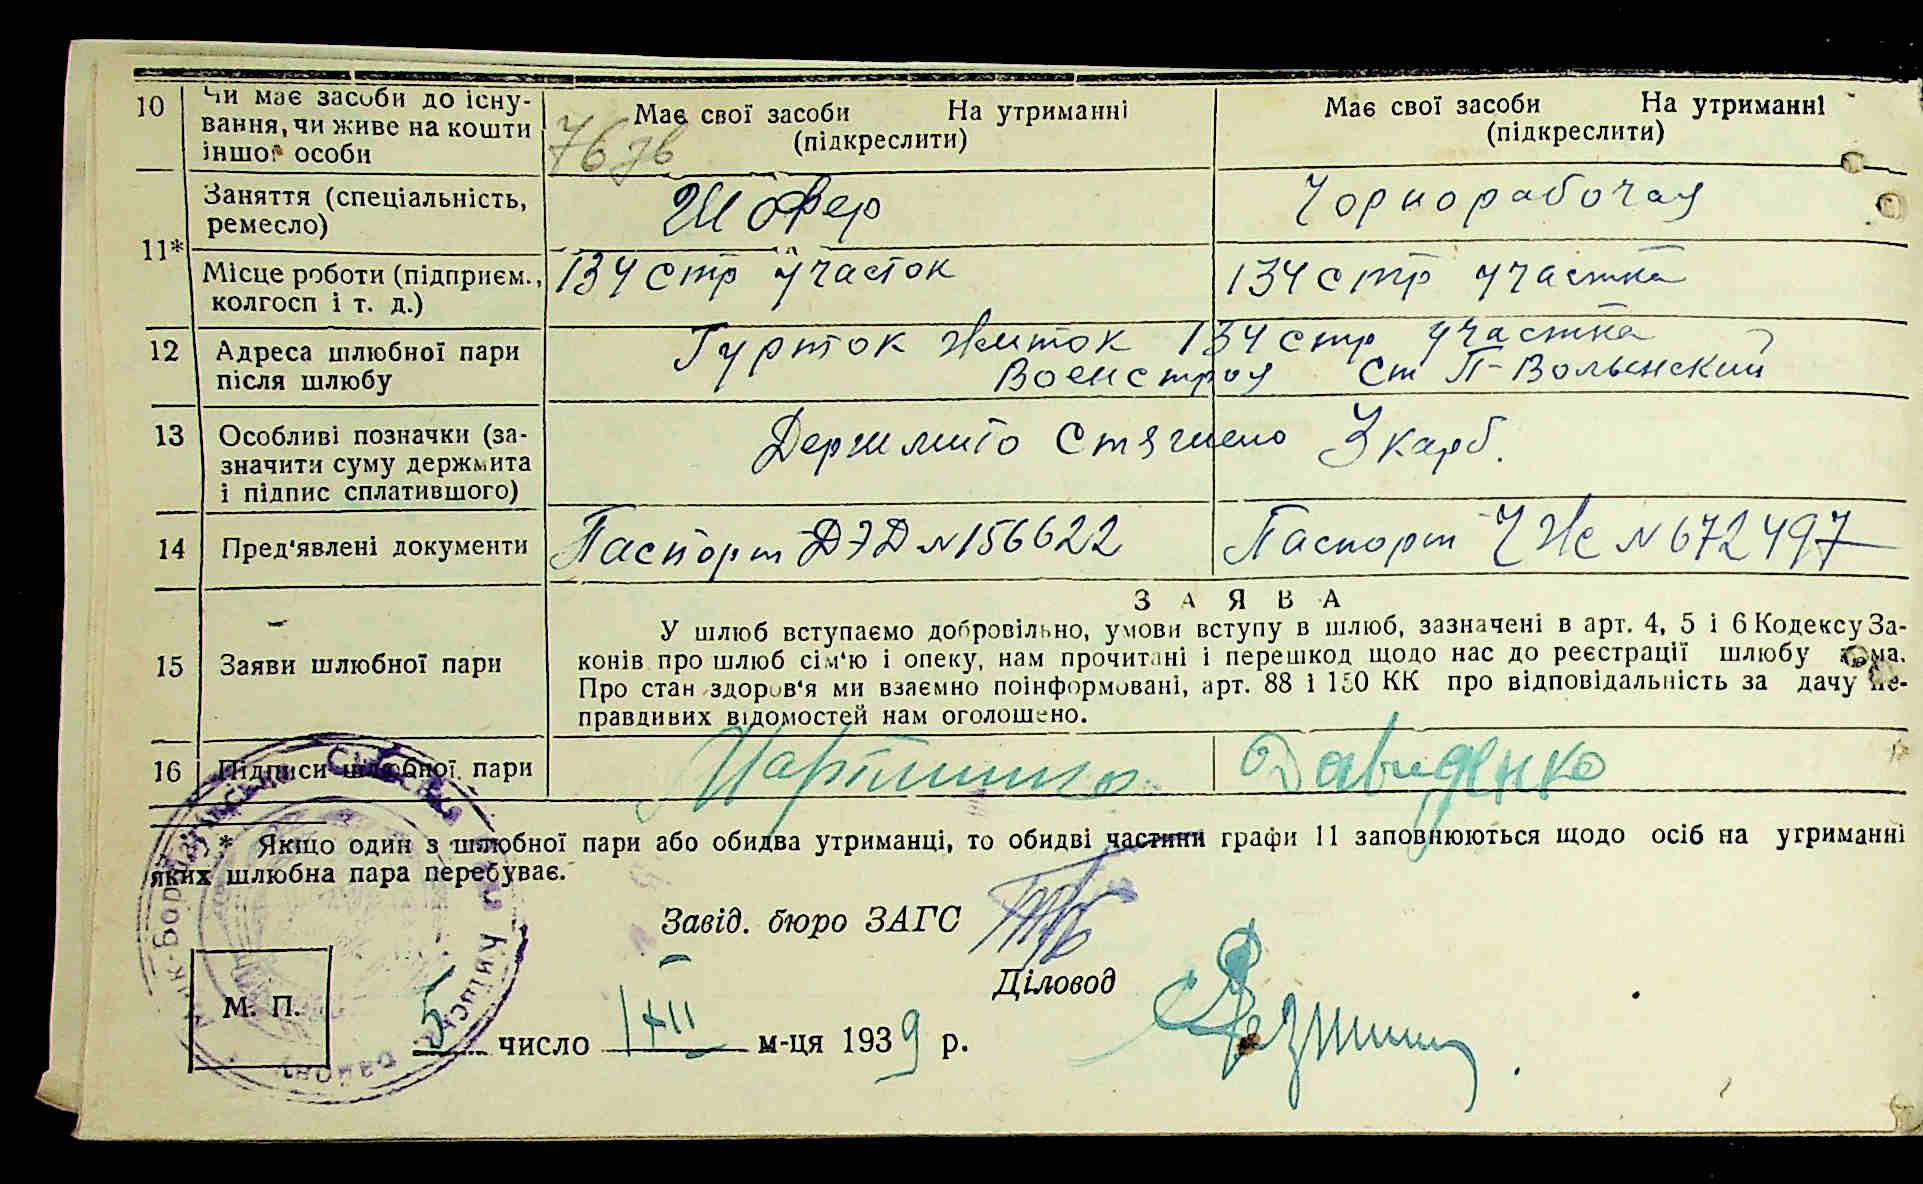 10 Чи має засоби до існу-
вання, чи живе на кошти
іншої особи
Має свої засоби На утриманні
(підкреслити)
Має свої засоби На утриманні
(підкреслити)
76 зв
11*
Заняття (спеціальність,
ремесло)
Шофер
Чорнорабочая
Місце роботи (підприєм.,
колгосп і т. д.)
134 стр участок
134 стр участка
12 Адреса шлюбної пари
після шлюбу
Гурток житок 134 стр участка
Военстроя Ст П-Волынский
13 Особливі позначки (за-
значити суму держмита
і підпис сплатившого)
Держмито стягнено 3 карб.
14 Пред'явлені документи
Паспорт ДЭД №156622
Паспорт ЧЖ №672497
15 Заяви шлюбної пари
ЗАЯВА
У шлюб вступаємо добровільно, умови вступу в шлюб, зазначені в арт. 4, 5 і 6 Кодексу За-
конів про шлюб сім'ю і опеку, нам прочитані і перешкод щодо нас до реєстрації шлюбу нема.
Про стан здоров'я ми взаємно поінформовані, арт. 88 і 150 КК про відповідальність за дачу не-
правдивих відомостей нам оголошено.
16 Підписи шлюбної пари
Давиденко
* Якщо один з шлюбної пари або обидва утриманці, то обидві частини графи 11 заповнюються щодо осіб на утриманні
яких шлюбна пара перебуває.
Завід. бюро ЗАГС
Діловод
М. П.
5 число XII м-ця 1939 р.